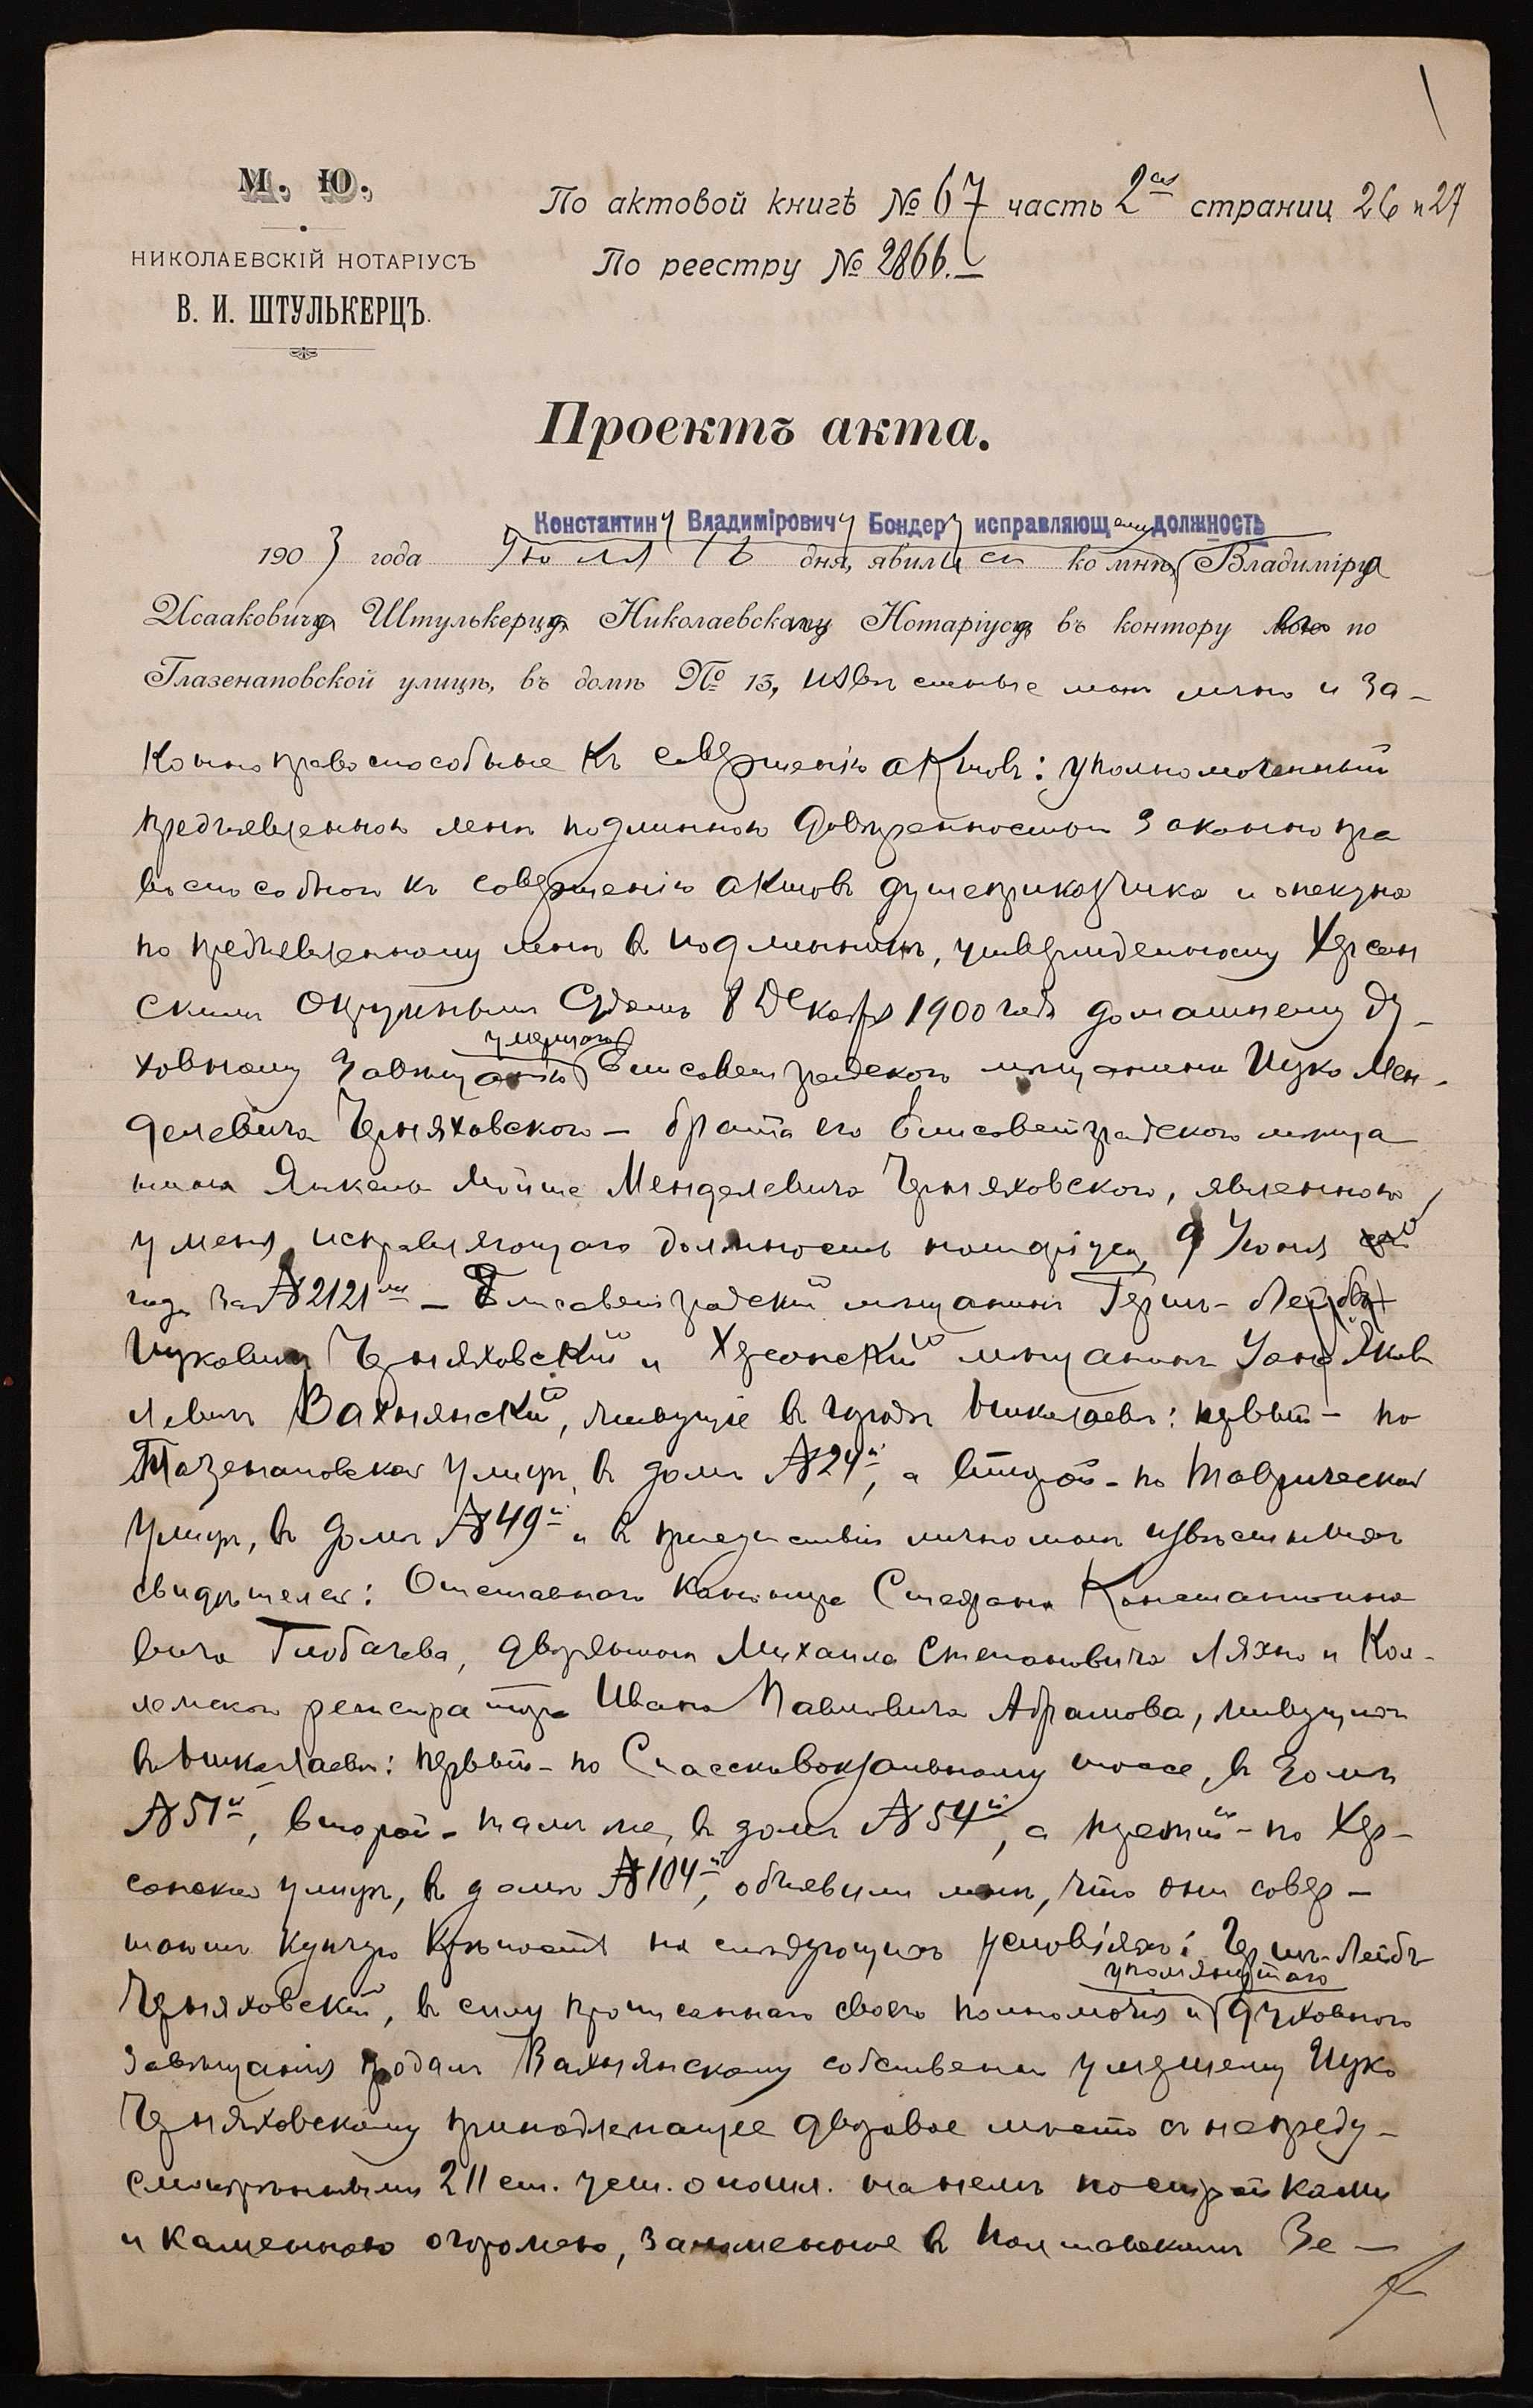 М. Ю.
НИКОЛАЕВСКІЙ НОТАРІУСЪ
В. И. ШТУЛЬКЕРЦЪ.
По актовой книгѣ № 67 часть 2ая страниц 26 и 27
По реестру № 2866.—
Проектъ акта.
Константину Владиміровичу Бондеру исправляющему должность
1903 года Іюля 16 дня, явились ко мнѣ, Владиміра
Исааковича Штулькерца Николаевскаго Нотаріуса въ контору его по
Глазенаповской улицѣ, въ домѣ № 13, извѣстные мнѣ лично и за-
конно правоспособные къ совершенію актовъ: уполномоченный
предъявленною мнѣ подлинною довѣренностью законно пра
воспособнаго къ совершенію актовъ душеприказчика и опекуна
по предъявленному мнѣ въ подлинникѣ, утвержденному Херсон
скимъ Окружнымъ Судомъ 8 Декабря 1900 года домашнему ду-
умершаго
ховному завѣщанію Елисаветградскаго мѣщанина Ицко Мен-
делевича Черняховскаго – брата его Елисаветградскаго мѣща
нина Янкеля Мойше Менделевича Черняховскаго, явленною
у меня, исправляющаго должность нотаріуса, 9 Іюня
года за № 2121мъ – Елисаветградскій мѣщанинъ Герш-Лейбъ
Ицковичъ Черняховскій и Херсонскій мѣщанинъ Яков
левичъ Вахнянскій, живущіе въ городѣ Николаевѣ: первый – по
Глазенаповской улицѣ, въ домѣ № 24й, а второй – по Таврической
улицѣ, въ домѣ № 49й и въ присутствіи лично мнѣ извѣстныхъ
свидѣтелей: Отставного Стефана Константино
вича Глобачева, дворянина Михаила Степановича Ляхно и Кол-
лежскаго регистратора Ивана Павловича Абрамова, живущихъ
въ Николаевѣ: первый – по шоссе, въ домѣ
№ 51й, второй – тамъ же, въ домѣ № 54й, а третій – по Хер-
сонской улицѣ, въ домѣ № 104й, объявили мнѣ, что они совер-
шаютъ купчую крѣпость на слѣдующихъ условіяхъ: Герш-Лейбъ
упомянутаго
Черняховскій, въ силу прописаннаго своего полномочія и духовнаго
завѣщанія продалъ Вахнянскому собственно умершему Ицко
Черняховскому принадлежащее дворовое мѣсто съ непреду-
смотрѣнными 211 ст. уст. о пошл. жилыми постройками
и каменною огорожею, заложенное въ Полтавскомъ Зе-